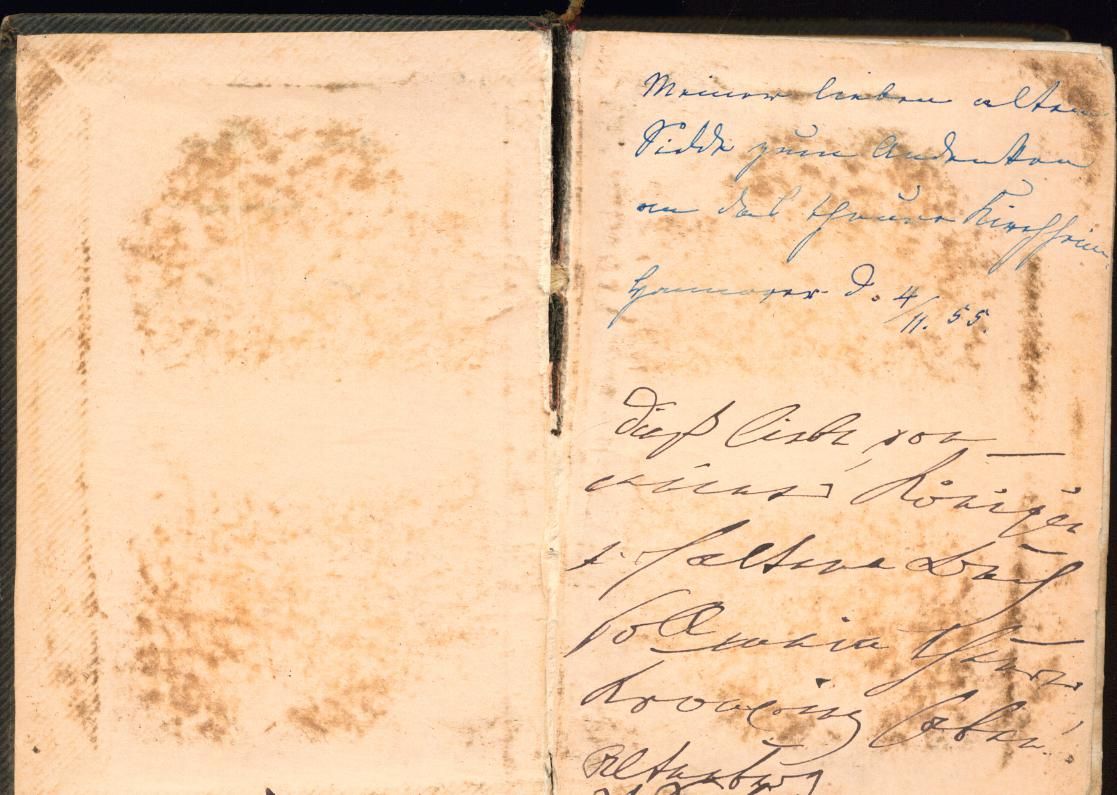 Meiner lieben alten
Sidde zum Andenken
an das theure Kirchheim
Hannover d. 4/11. 55.
Dieß liebe, von
meiner Königin
erhaltene Buch
soll mein theurer
haben!
Altenburg